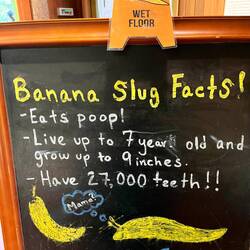 WET
FLOOR
Banana Slug Facts!
- Eats poop!
- Live up to 7 years old and
grow up to 9 inches.
- Have 27,000 teeth!!
Mama?